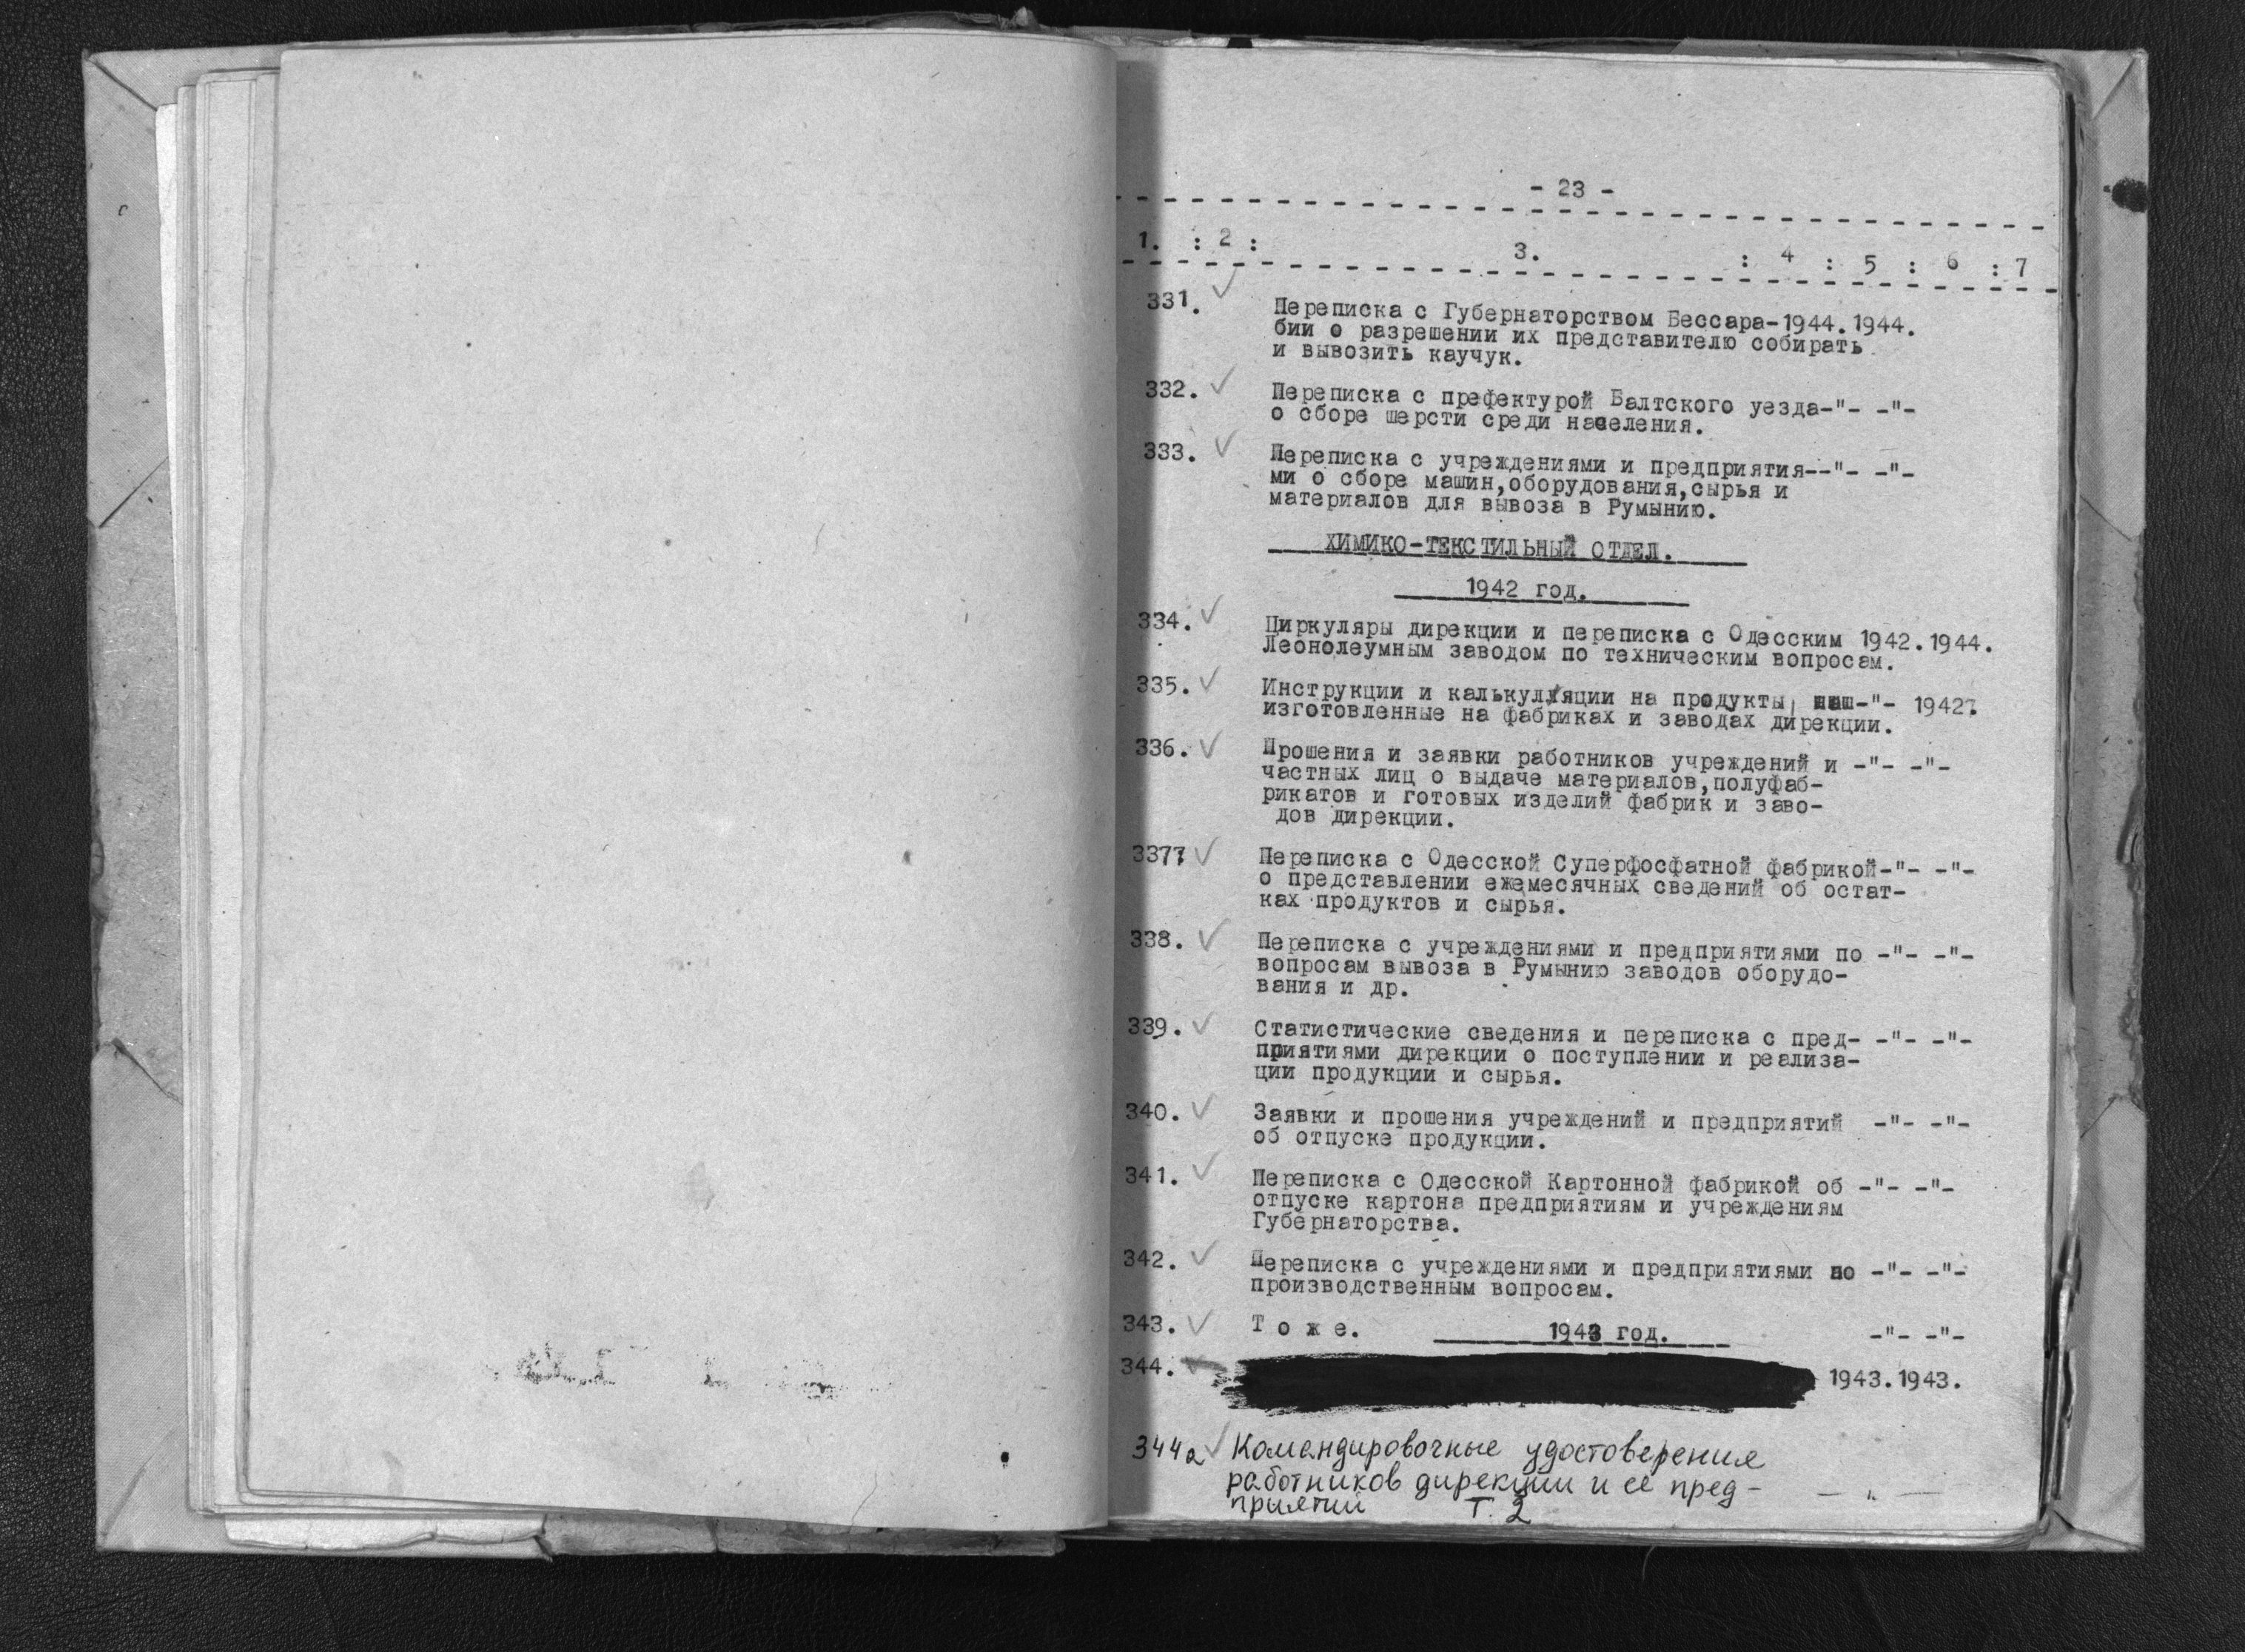 - 23 -
1. : 2 : 3. : 4 : 5 : 6 : 7
331. ✓ Переписка с Губернаторством Бессара-1944.1944.
бии о разрешении их представителю собирать
и вывозить каучук.
332. ✓ Переписка с префектурой Балтского уезда-"- -"-
о сборе шерсти среди населения.
333. ✓ Переписка с учреждениями и предприятия--"- -"-
ми о сборе машин,оборудования,сырья и
материалов для вывоза в Румынию.
ХИМИКО-ТЕКСТИЛЬНЫЙ ОТДЕЛ.
1942 год.
334. ✓ Циркуляры дирекции и переписка с Одесским 1942.1944.
Леонолеумным заводом по техническим вопросам.
335. ✓ Инструкции и калькулляции на продукты, -"- 1942.
изготовленные на фабриках и заводах дирекции.
336. ✓ Прошения и заявки работников учреждений и -"- -"-
частных лиц о выдаче материалов,полуфаб-
рикатов и готовых изделий фабрик и заво-
дов дирекции.
3377 ✓ Переписка с Одесской Суперфосфатной фабрикой-"- -"-
о представлении ежемесячных сведений об остат-
ках продуктов и сырья.
338. ✓ Переписка с учреждениями и предприятиями по -"- -"-
вопросам вывоза в Румынию заводов оборудо-
вания и др.
339. ✓ Статистические сведения и переписка с пред- -"- -"-
приятиями дирекции о поступлении и реализа-
ции продукции и сырья.
340. ✓ Заявки и прошения учреждений и предприятий -"- -"-
об отпуске продукции.
341. ✓ Переписка с Одесской Картонной фабрикой об -"- -"-
отпуске картона предприятиям и учреждениям
Губернаторства.
342. ✓ Переписка с учреждениями и предприятиями по -"- -"-
производственным вопросам.
343. ✓ Т о ж е. 1943 год. -"- -"-
344. ✓ 1943.1943.
344а ✓ Командировочные удостоверения
работников дирекции и ее пред- — " —
приятий Т. 2